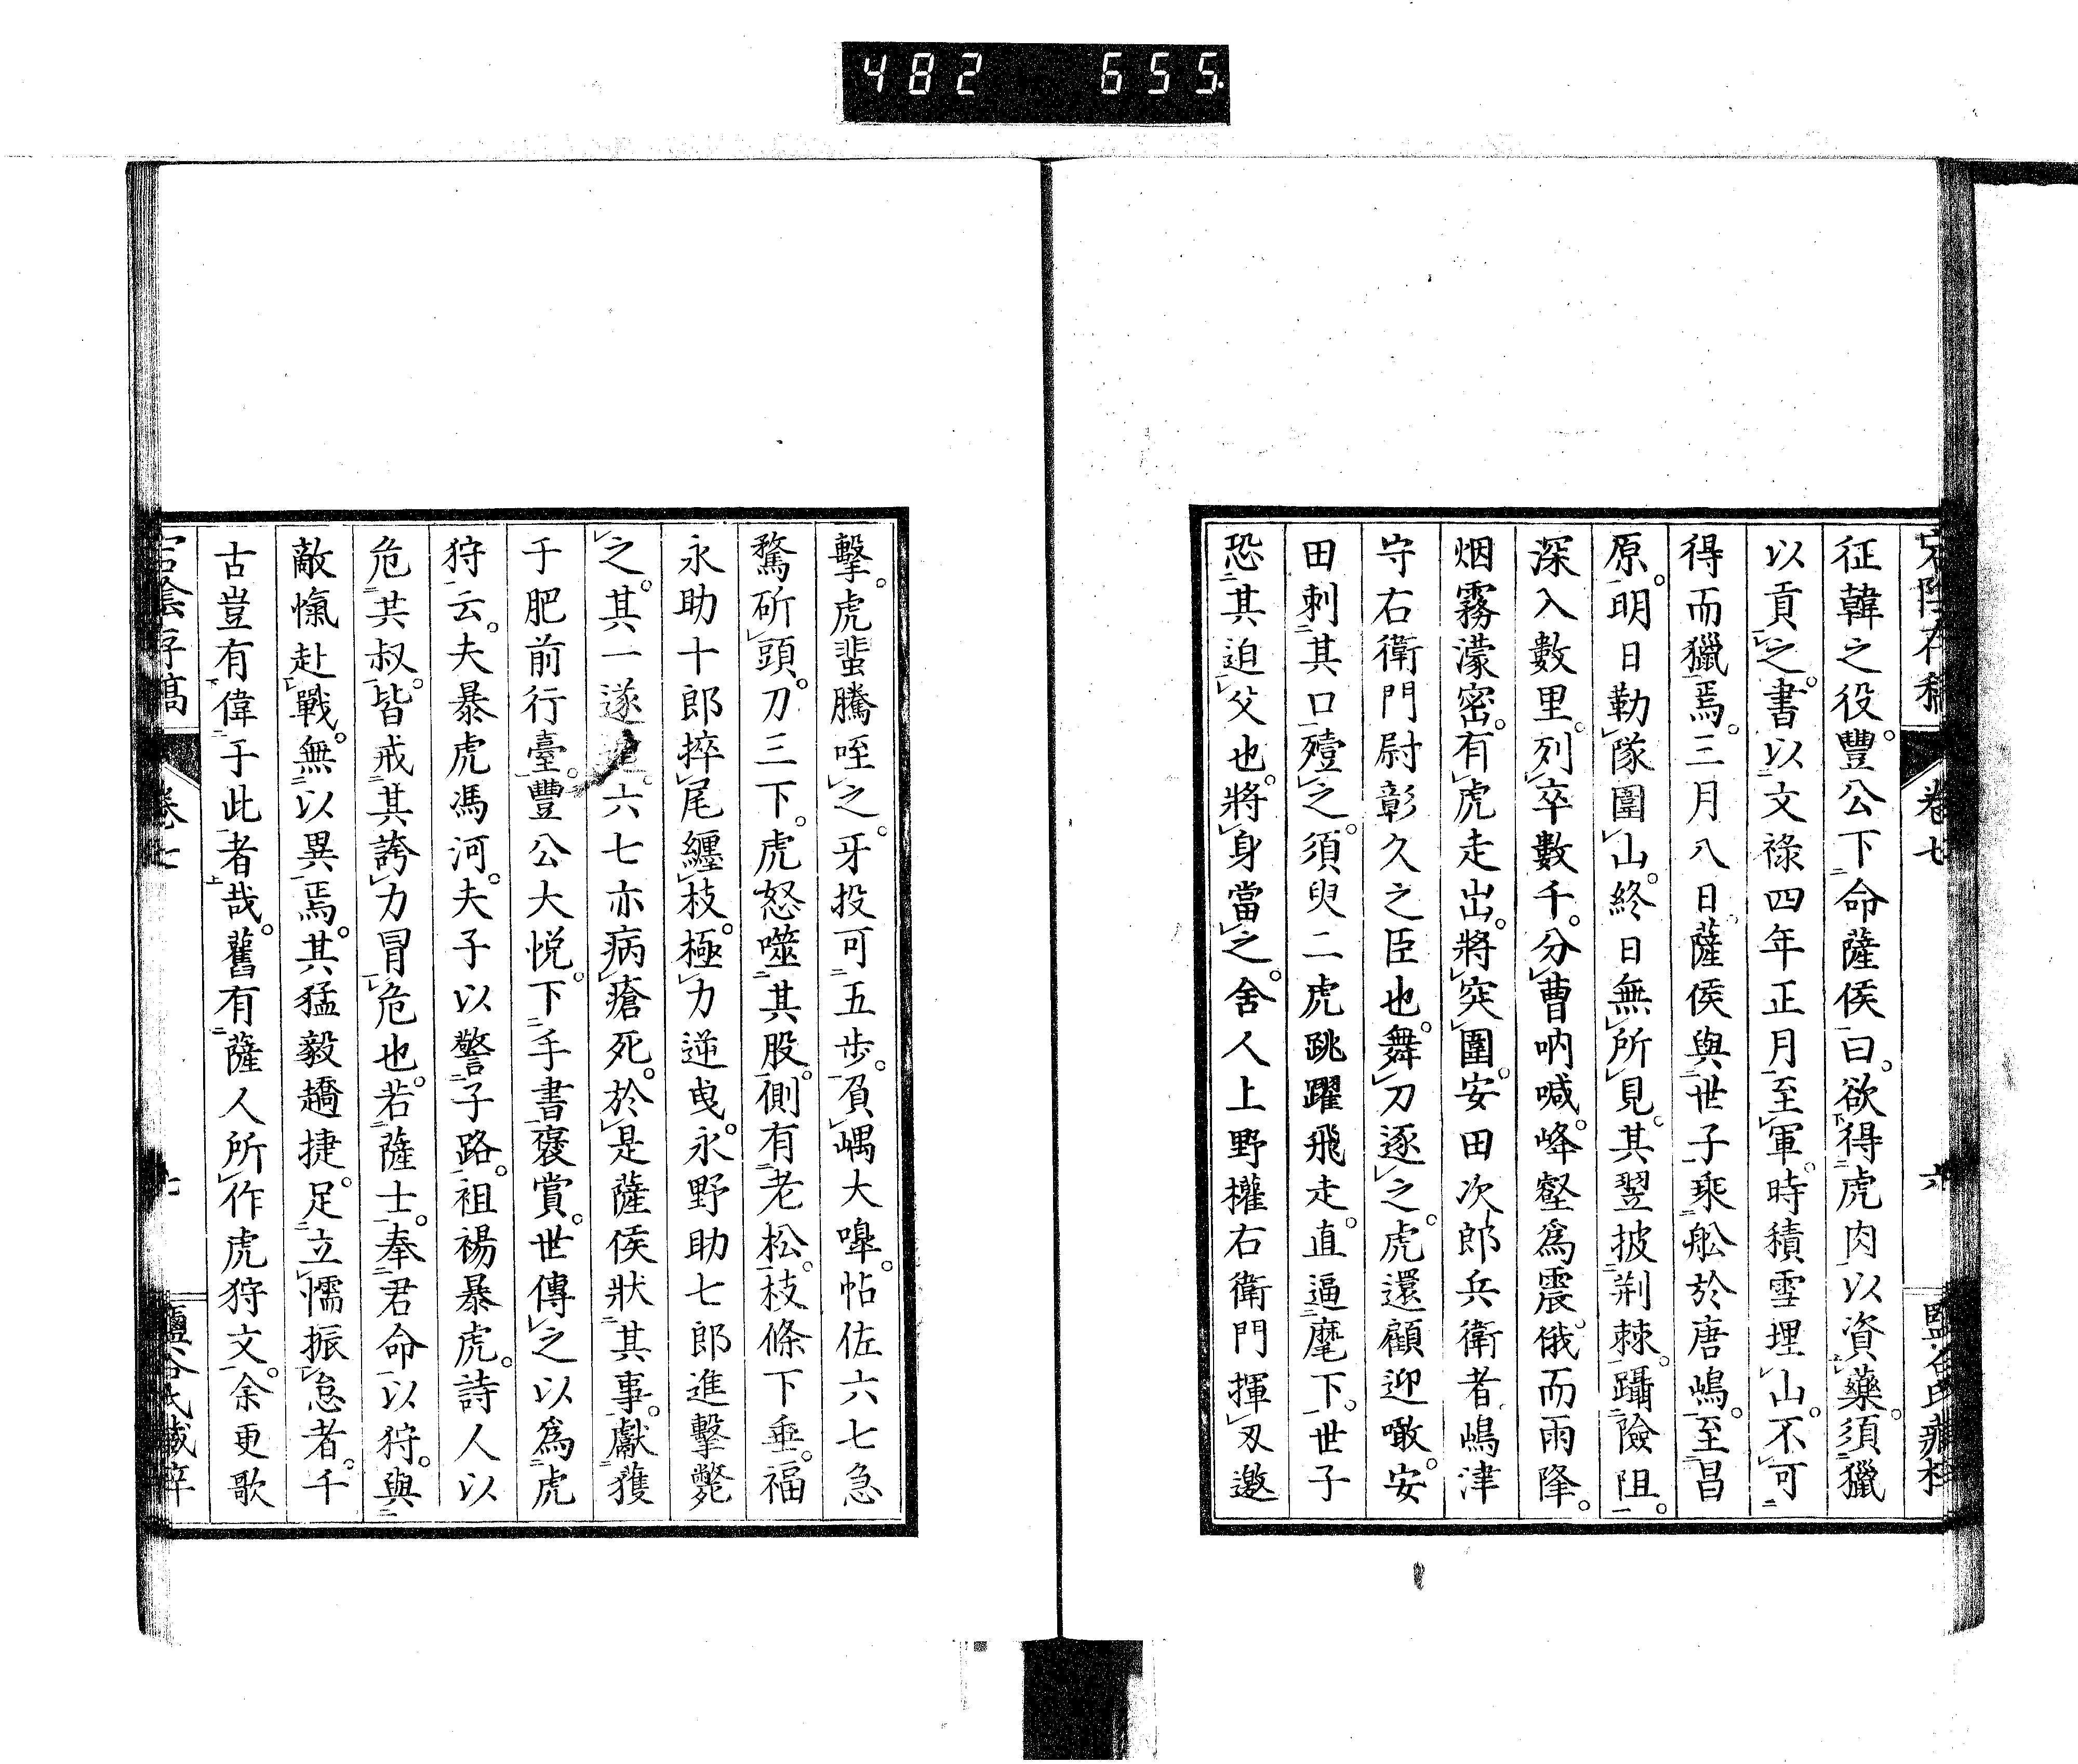 482 655.
征韓之役。豐公下命薩侯曰。欲得虎肉以資藥。須獵
以貢之。書以文祿四年正月至軍。時積雪埋山。不可
得而獵焉。三月八日。薩侯與世子乘舩於唐嶋。至昌
原。明日勒隊圍山。終日無所見。其翌披荊棘。躡險阻。
深入數里。列卒數千。分曹吶喊。峰壑爲震。俄而雨降。
烟霧濛密。有虎走出。將突圍。安田次郎兵衛者嶋津
守右衛門尉彰久之臣也。舞刀逐之。虎還顧迎噉。安
田刺其口殪之。須臾二虎跳躍飛走。直逼麾下。世子
恐其迫父也。將身當之。舍人上野權右衛門揮刃邀
卷七
六
擊。虎蜚騰咥之。牙投可五步。負嵎大嘷。帖佐六七急
騖斫頭。刀三下。虎怒噬其股。側有老松。枝條下垂。福
永助十郎捽尾纏枝。極力逆曳。永野助七郎進擊斃
之。其一遂。六七亦病瘡死。於是薩侯狀其事。獻獲
于肥前行臺。豐公大悦。下手書褒賞。世傳之以爲虎
狩云。夫暴虎馮河。夫子以警子路。袒裼暴虎。詩人以
危共叔。皆戒其誇力冒危也。若薩士。奉君命以狩。與
敵愾赴戰。無以異焉。其猛毅趫捷。足立懦振怠者。千
古豈有偉于此者哉。舊有薩人所作虎狩文。余更歌
宕陰存稿
卷七